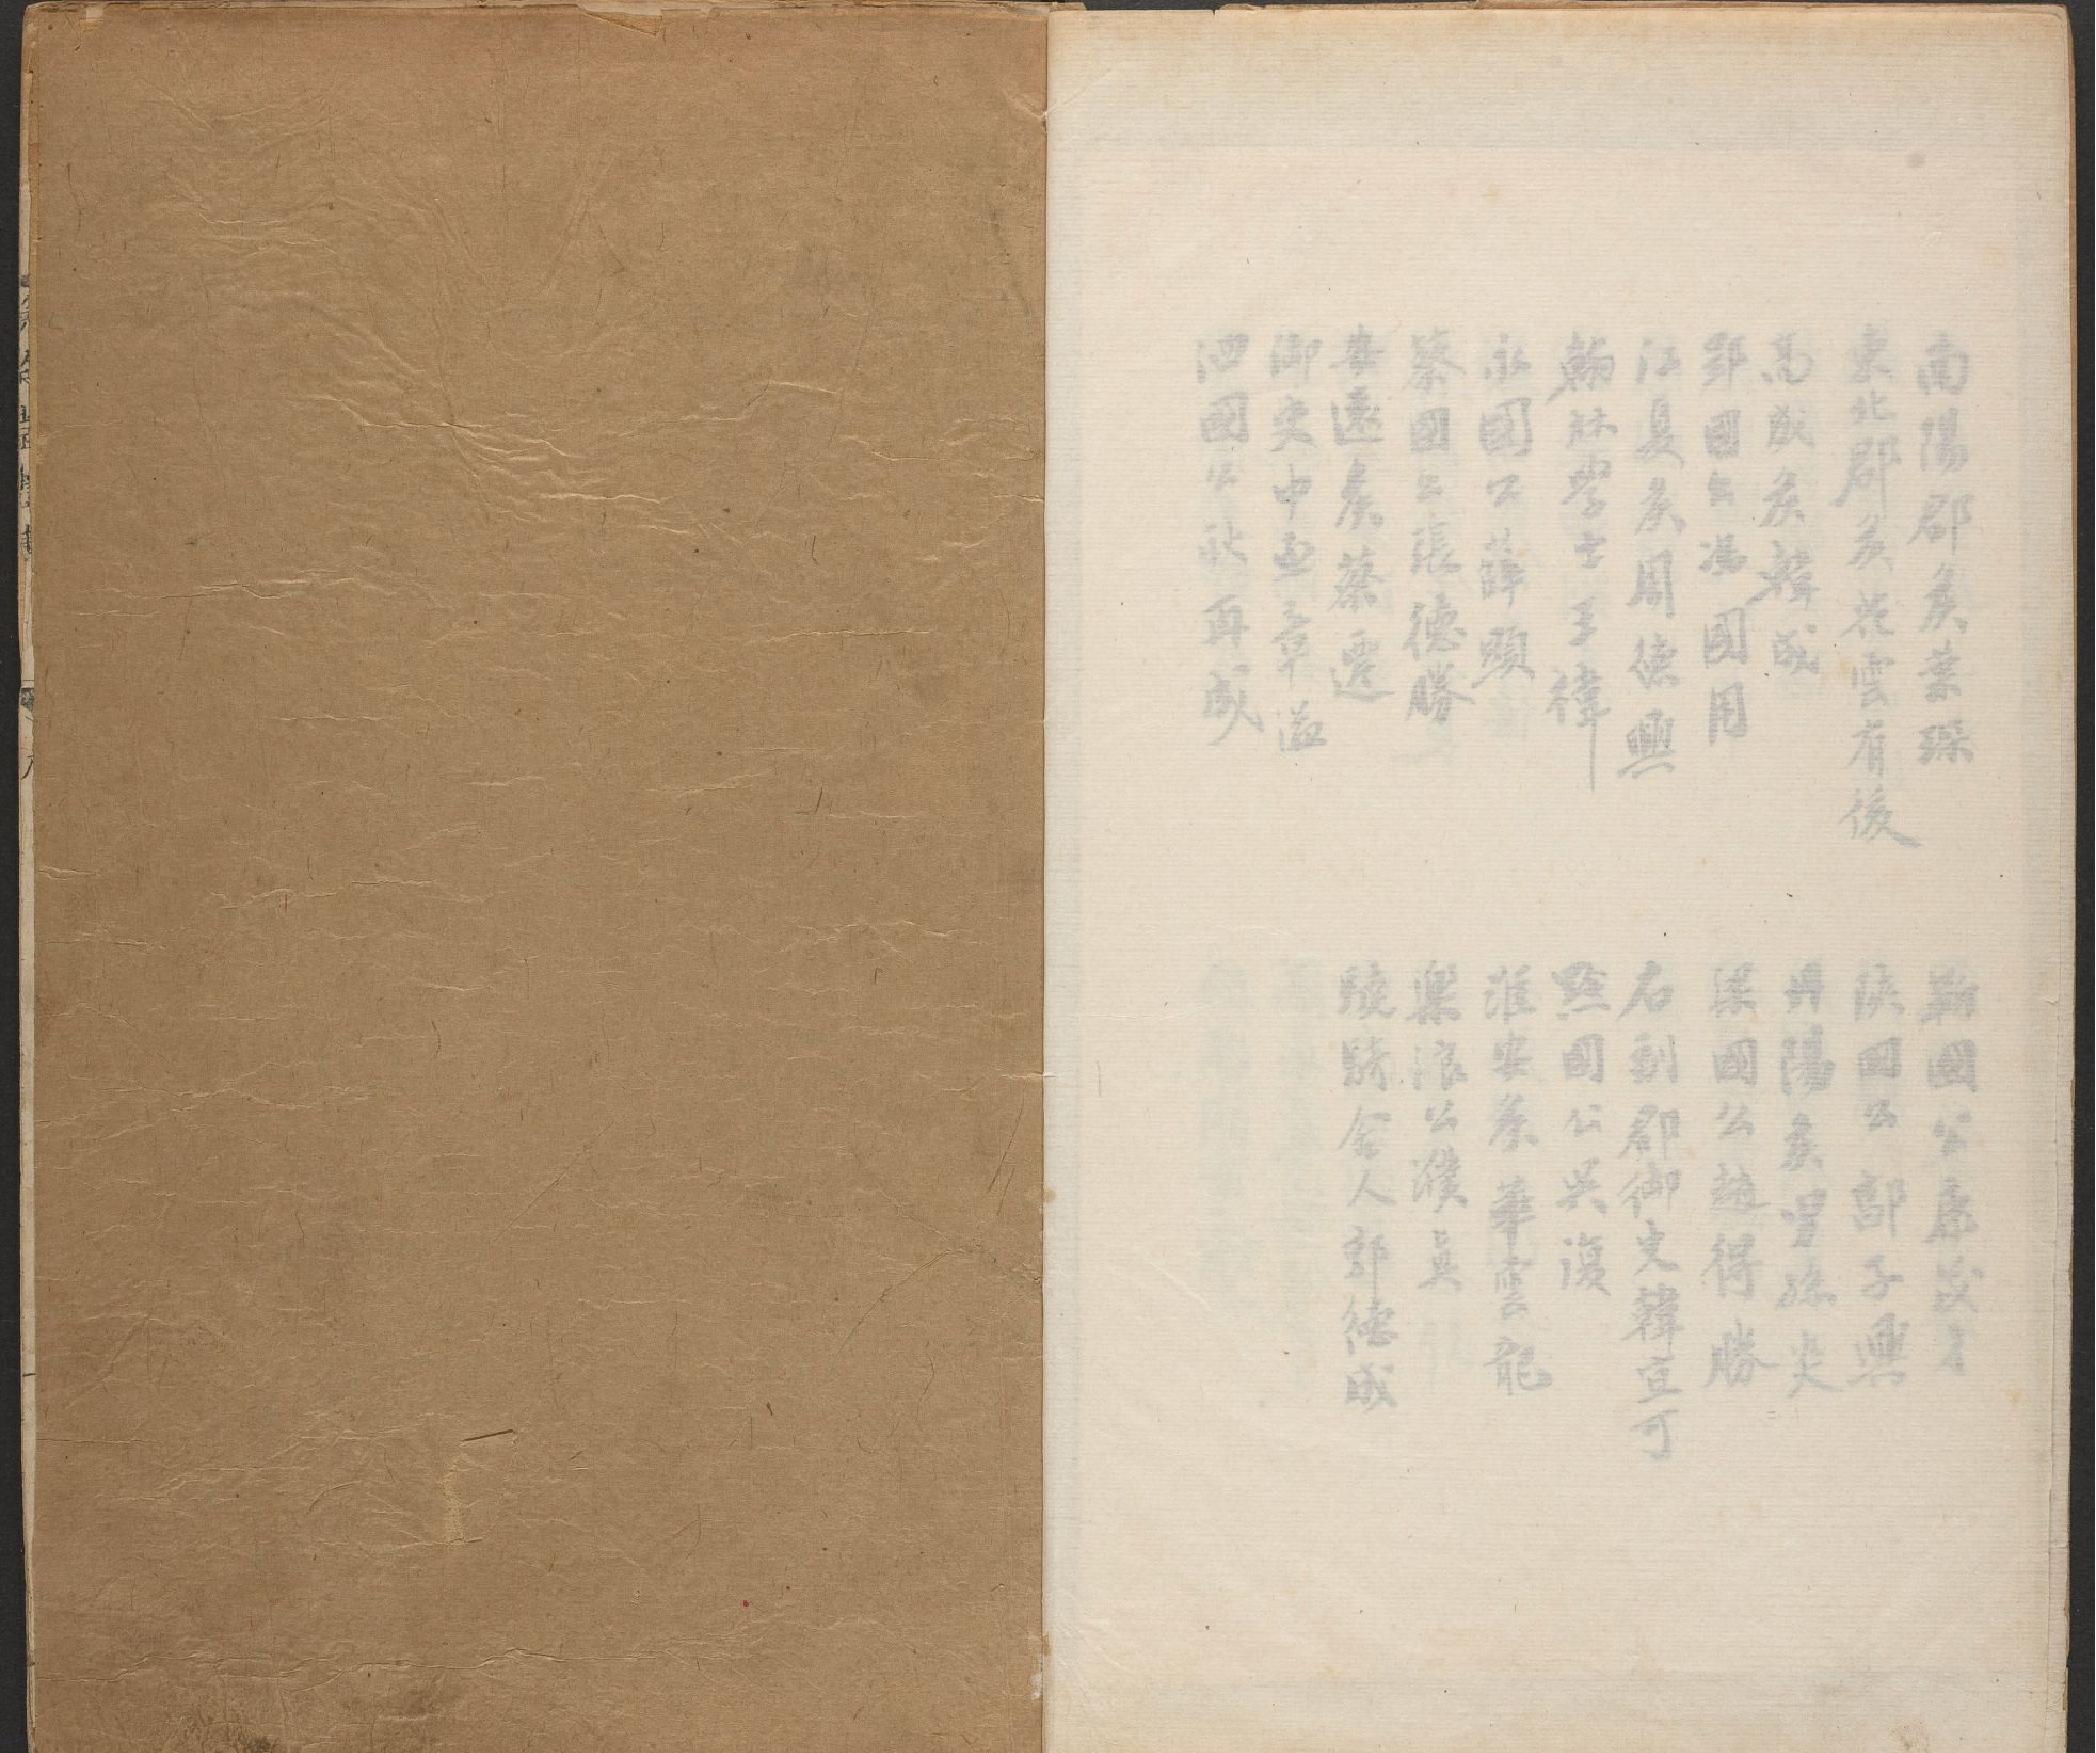 南陽郡矦葉琛
東北郡矦花雲有後
高成矦韓成
郢國公馮國用
江夏矦周德興
翰林學士王褘
永國公薛顯
蔡國公張德勝
安遠矦蔡遷
御史中丞章溢
泗國公耿再成
蘄國公康茂才
陝國公郭子興
丹陽矦 孫炎
梁國公趙得勝
右副都御史韓宜可
黔國公吳復
淮安矦華雲龍
樂浪公濮真
驍騎舍人郭德成